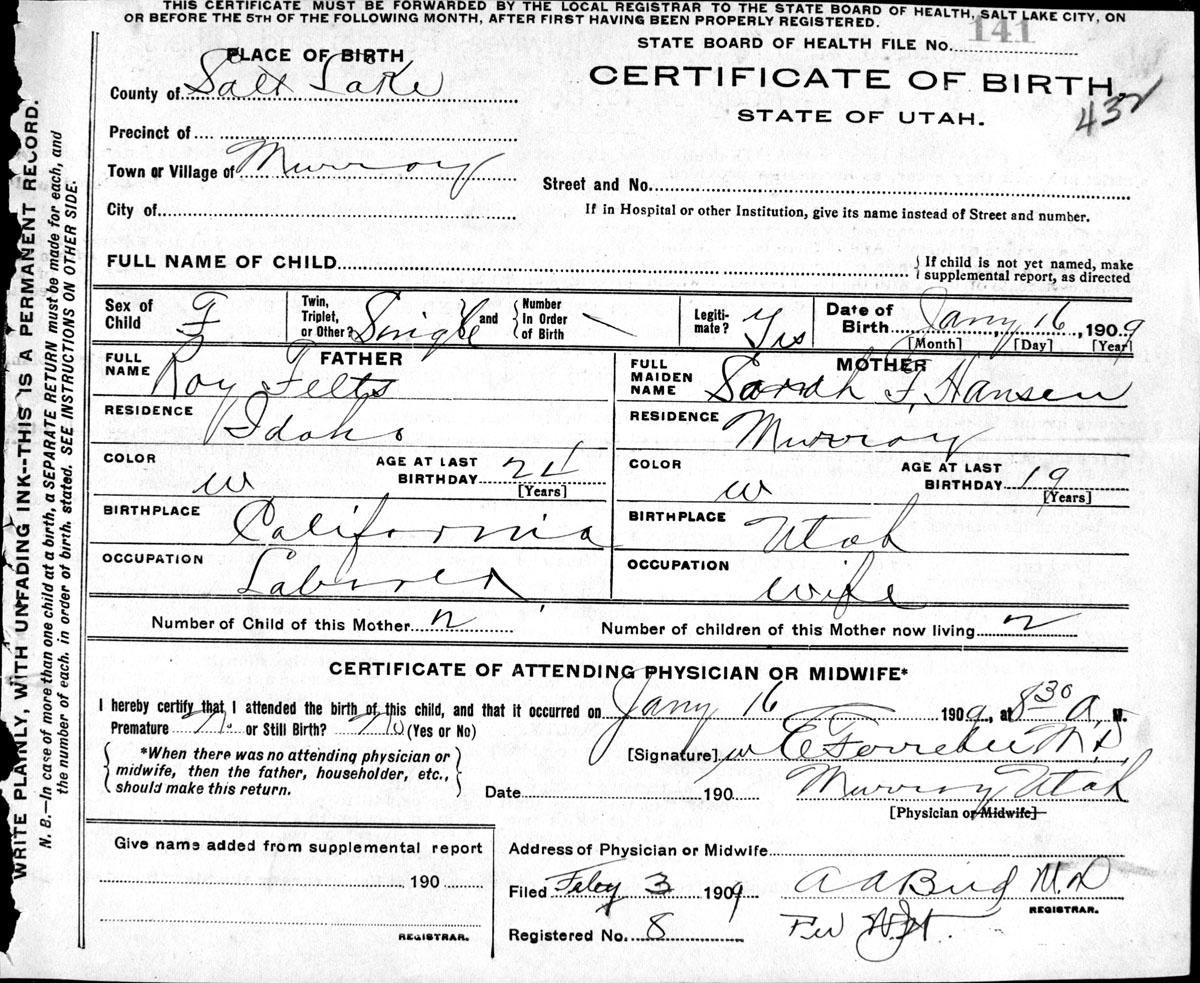 THIS CERTIFICATE MUST BE FORWARDED BY THE LOCAL REGISTRAR TO THE STATE BOARD OF HEALTH, SALT LAKE CITY, ON
OR BEFORE THE 5TH OF THE FOLLOWING MONTH, AFTER FIRST HAVING BEEN PROPERLY REGISTERED.
STATE BOARD OF HEALTH FILE No. 141
PLACE OF BIRTH
CERTIFICATE OF BIRTH.
County of Salt Lake
STATE OF UTAH.
432
Precinct of
Town or Village of Murray
Street and No.
City of
If in Hospital or other Institution, give its name instead of Street and number.
FULL NAME OF CHILD
{ If child is not yet named, make
supplemental report, as directed
Sex of Child F
Twin, Triplet, or Other? Single and { Number In Order of Birth —
Legiti-mate? Yes
Date of Birth Jany 16, 1909
[Month] [Day] [Year]
FATHER
FULL NAME Roy Felts
MOTHER
FULL MAIDEN NAME Sarah F. Hansen
RESIDENCE Idaho
RESIDENCE Murray
COLOR w
AGE AT LAST BIRTHDAY 21 [Years]
COLOR w
AGE AT LAST BIRTHDAY 19 [Years]
BIRTHPLACE California
BIRTHPLACE Utah
OCCUPATION Laborer
OCCUPATION wife
Number of Child of this Mother 2
Number of children of this Mother now living 2
CERTIFICATE OF ATTENDING PHYSICIAN OR MIDWIFE*
I hereby certify that I attended the birth of this child, and that it occurred on Jany 16 1909, at 8 30 a. M.
Premature No or Still Birth? No (Yes or No)
[Signature] M.D.
{ *When there was no attending physician or
midwife, then the father, householder, etc.,
should make this return. }
Date 190
Murray Utah
[Physician or Midwife]
Give name added from supplemental report
190
REGISTRAR.
Address of Physician or Midwife
Filed Feby 3 1909 A A Bird M.D
REGISTRAR.
Registered No. 8
WRITE PLAINLY, WITH UNFADING INK--THIS IS A PERMANENT RECORD.
N. B.—In case of more than one child at a birth, a SEPARATE RETURN must be made for each, and
the number of each, in order of birth, stated. SEE INSTRUCTIONS ON OTHER SIDE.